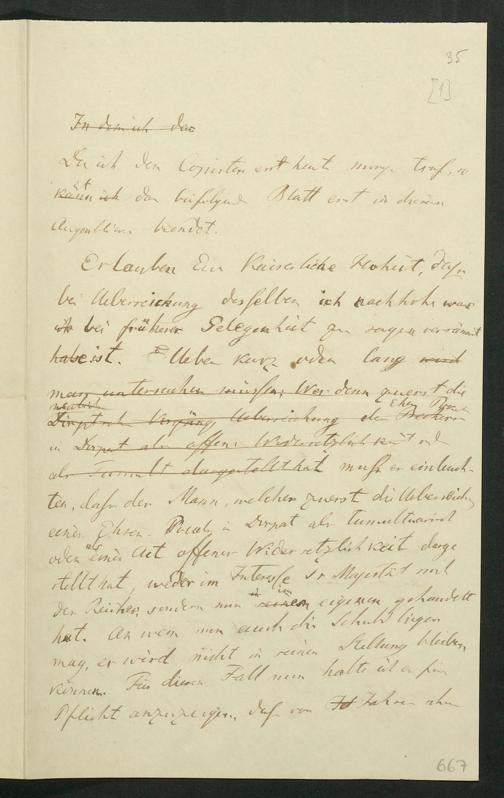 35
[1]
In dem ich das
Da ich den Copisten erst heute morgen traf, so
ist das beifolgende Blatt erst in diesem
Augenblicke beendet.
Erlauben Eur Kaiserliche Hoheit, dass
bei Ueberreichung desselben ich nachhohle was
bei früherer Gelegenheit zu sagen versäumt
ist. Ueber kurz oder lang wird
man untersuchen müssen, Wer denn zuerst die
neulich Ehren Pocal
Dorpat Vorgänge Ueberreichung des
in Dorpat als offene Widersetzlichkeit und
als Tumult dargestellt hat muss es einleuch-
ten, dass der Mann, welcher zuerst die Ueberreichung
eines Ehren-Pocals in Dorpat als tumultuarisch
oder als eine Art offener Widersetzlichkeit darge
stellt hat, weder im Interesse Sr Majestät noch
des Reiches, sondern nur in seinem eigenen gehandelt
hat. An wem nun auch die Schuld liegen
mag, er wird nicht in seiner Stellung bleiben
können. Für diesen Fall nun halte ich es für
Pflicht anzuzeigen, dass vor Jahren schon
667